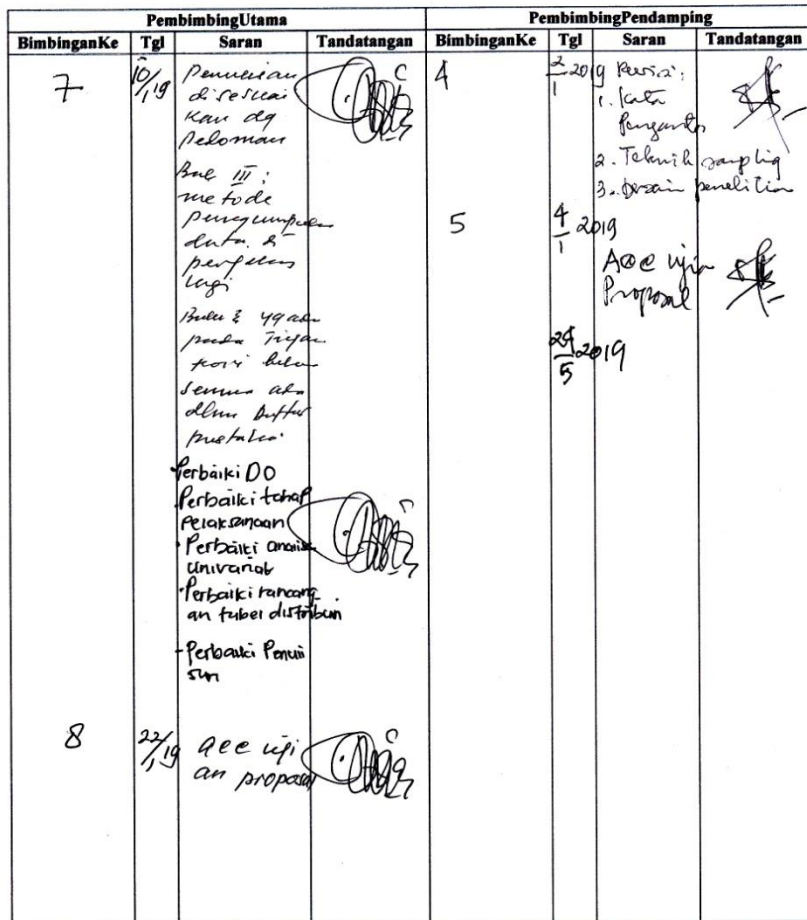 PembimbingUtama
PembimbingPendamping
BimbinganKe Tgl Saran Tandatangan
BimbinganKe Tgl Saran Tandatangan
7
10/1 19
Penulisan
disesuai
kan dg
Pedoman
Bab III:
metode
pengumpulan
data. &
perjelas
lagi
pada
semua ada
dlm Daftar
pustaka.
Perbaiki DO
Perbaiki tahap
pelaksanaan
Perbaiki analisis
univariat
Perbaiki rancang
an tabel distribusi
Perbaiki Penuli
san
8
22/1 19
acc uji
an proposal
4
2/1 2019
Revisi:
1. Kata
Pengantar
2. Teknik sampling
3. Desain penelitian
5
4/1 2019
Acc ujian
Proposal
24/5 2019